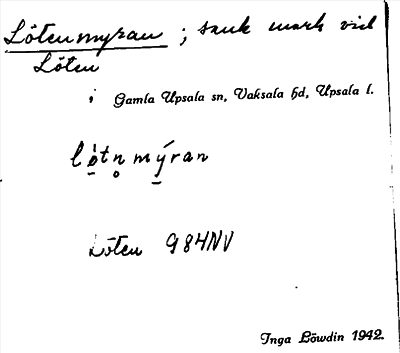 Lötenmyran ; sank mark vid
Löten
; Gamla Upsala sn, Vaksala hd, Upsala l.
lö̀tn̥mýran
Löten 984NV
Inga Löwdin 1942.